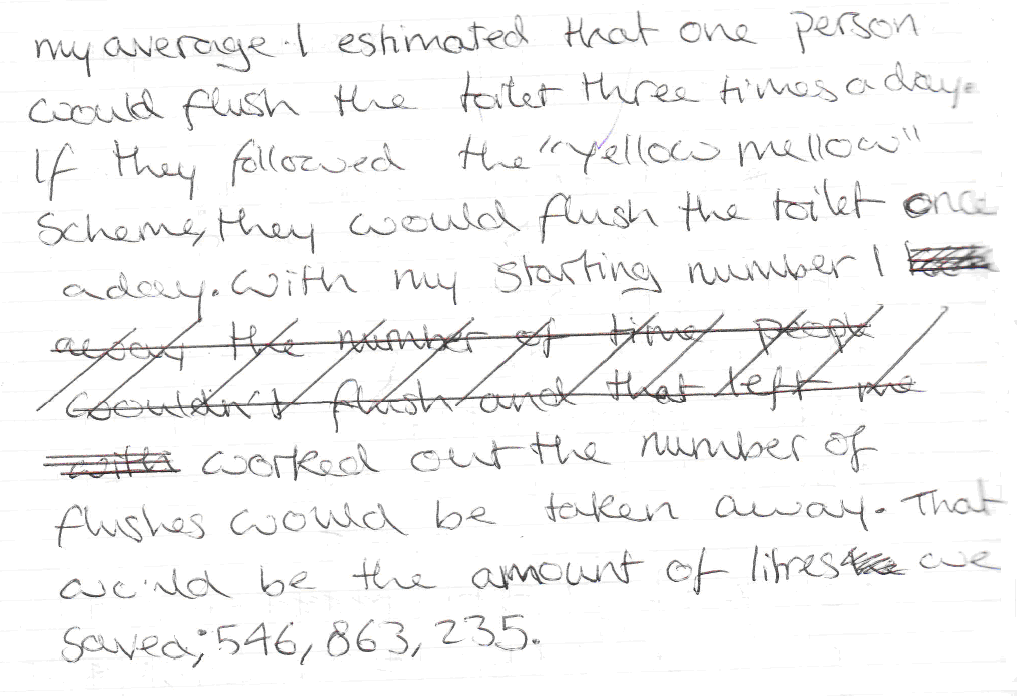 my average. I estimated that one person
would flush the toilet three times a day.
If they followed the "yellow mellow"
Scheme, they would flush the toilet once
a day. With my starting number I
away the number of time people
wouldn't flush and that left me
with worked out the number of
flushes would be taken away. That
would be the amount of litres we
saved; 546,863,235.